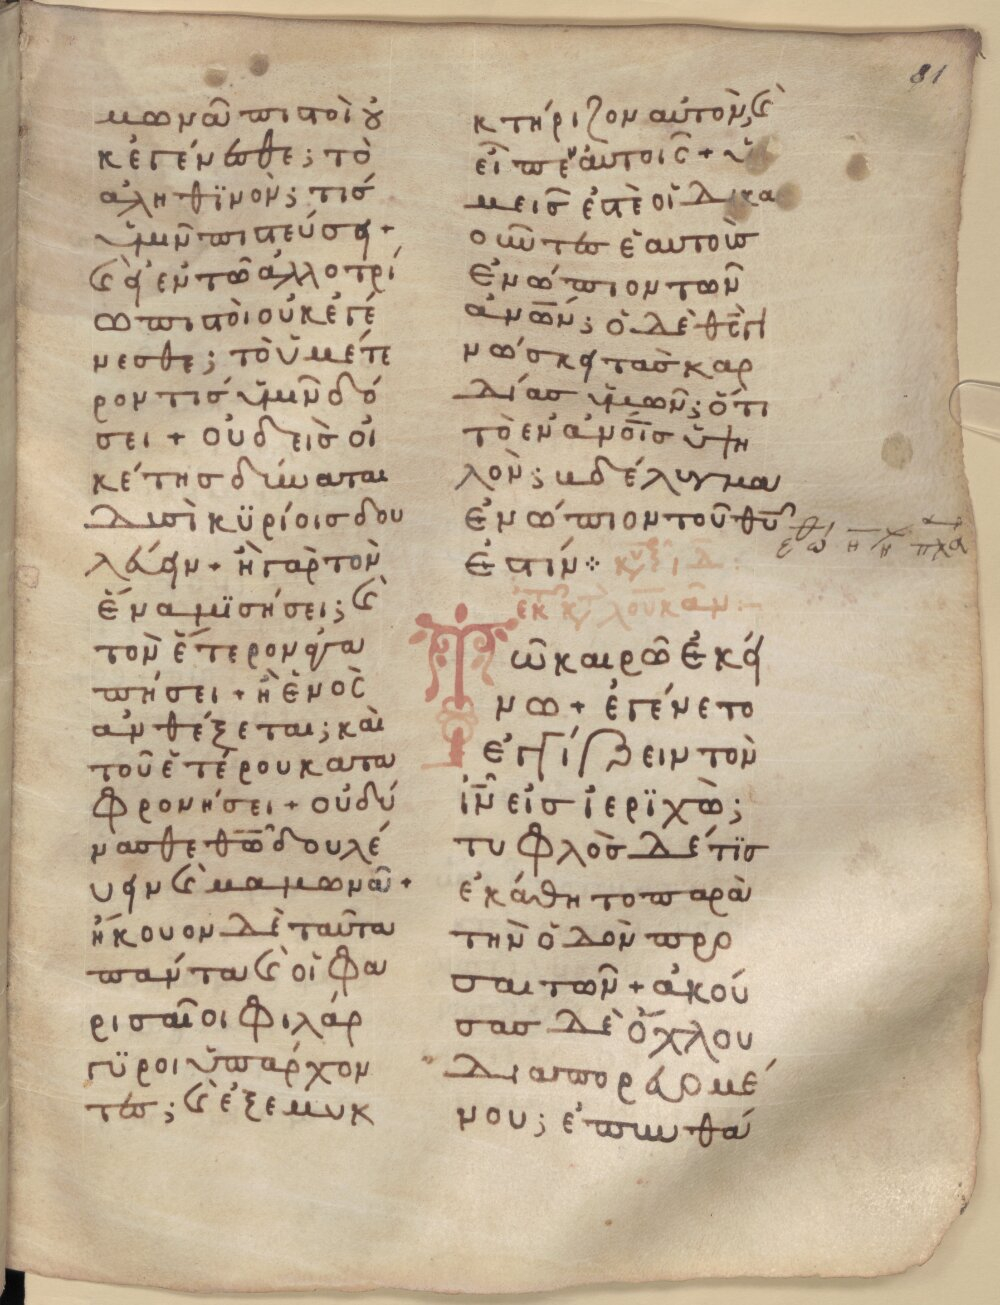 81
μωνᾶ πιστοὶ οὐ
κ ἐγένωσθε; τὸ
ἀληθϊνὸν; τίσ
ὑμῖν πιστεύσει +
καὶ εἰ ἐν τῶ ἀλλοτρί
ω πιστοὶ οὐκ ἐγέ
νεσθε; τὸ ὑμέτε
ρον τίσ ὑμῖν δώ
σει + οὐδεὶσ οἰ
κέτησ δύναται
δυσὶ κϋρίοισ δου
λεύειν + ἢ γὰρ τὸν
ἕνα μϊσήσει; καὶ
τὸν ἕτερον ἀγα
πήσει + ἢ ἑνὸσ
ἀνθέξεται; καὶ
τοῦ ἑτέρου κατα
φρονήσει + οὐ δύ
νασθε θω̅ δουλεύ
ειν καὶ μαμωνᾶ +
ἤκουον δὲ ταῦτα
πάντα καὶ οἱ φα
ρισαῖοι φιλάρ
γϋροι ὑπάρχον
τεσ; καὶ ἐξεμυκ
κτήριζον αὐτὸν; καὶ
εἶπεν αὐτοῖσ + ὑ
μεῖσ ἐστὲ οἱ δικα
οῦντεσ ἑαυτοὺσ
ἐνώπιον τῶν
ἀνω̅ν; ὁ δὲ θ̅ς γι
νώσκει τὰσ καρ
δίασ ὑμῶν; ὅτι
τὸ ἐν ἀνο̅ισ ὑψη
λὸν; βδέλυγμα
ἐνώπιον τοῦ θ̅υ
ἐστίν
ἐκ τοῦ κατὰ λουκᾶν
Τῶ καιρῶ ἐκεί
νω + ἐγένετο
ἐγγίζειν τὸν
ἰ̅ν εἰσ ἱερϊχὼ;
τυφλὸσ δέ τϊσ
ἐκάθητο παρὰ
τὴν ὁδὸν προ
σαιτῶν + ἀκού
σασ δὲ ὄχλου
διαπορευομέ
νου; ἐπυνθά